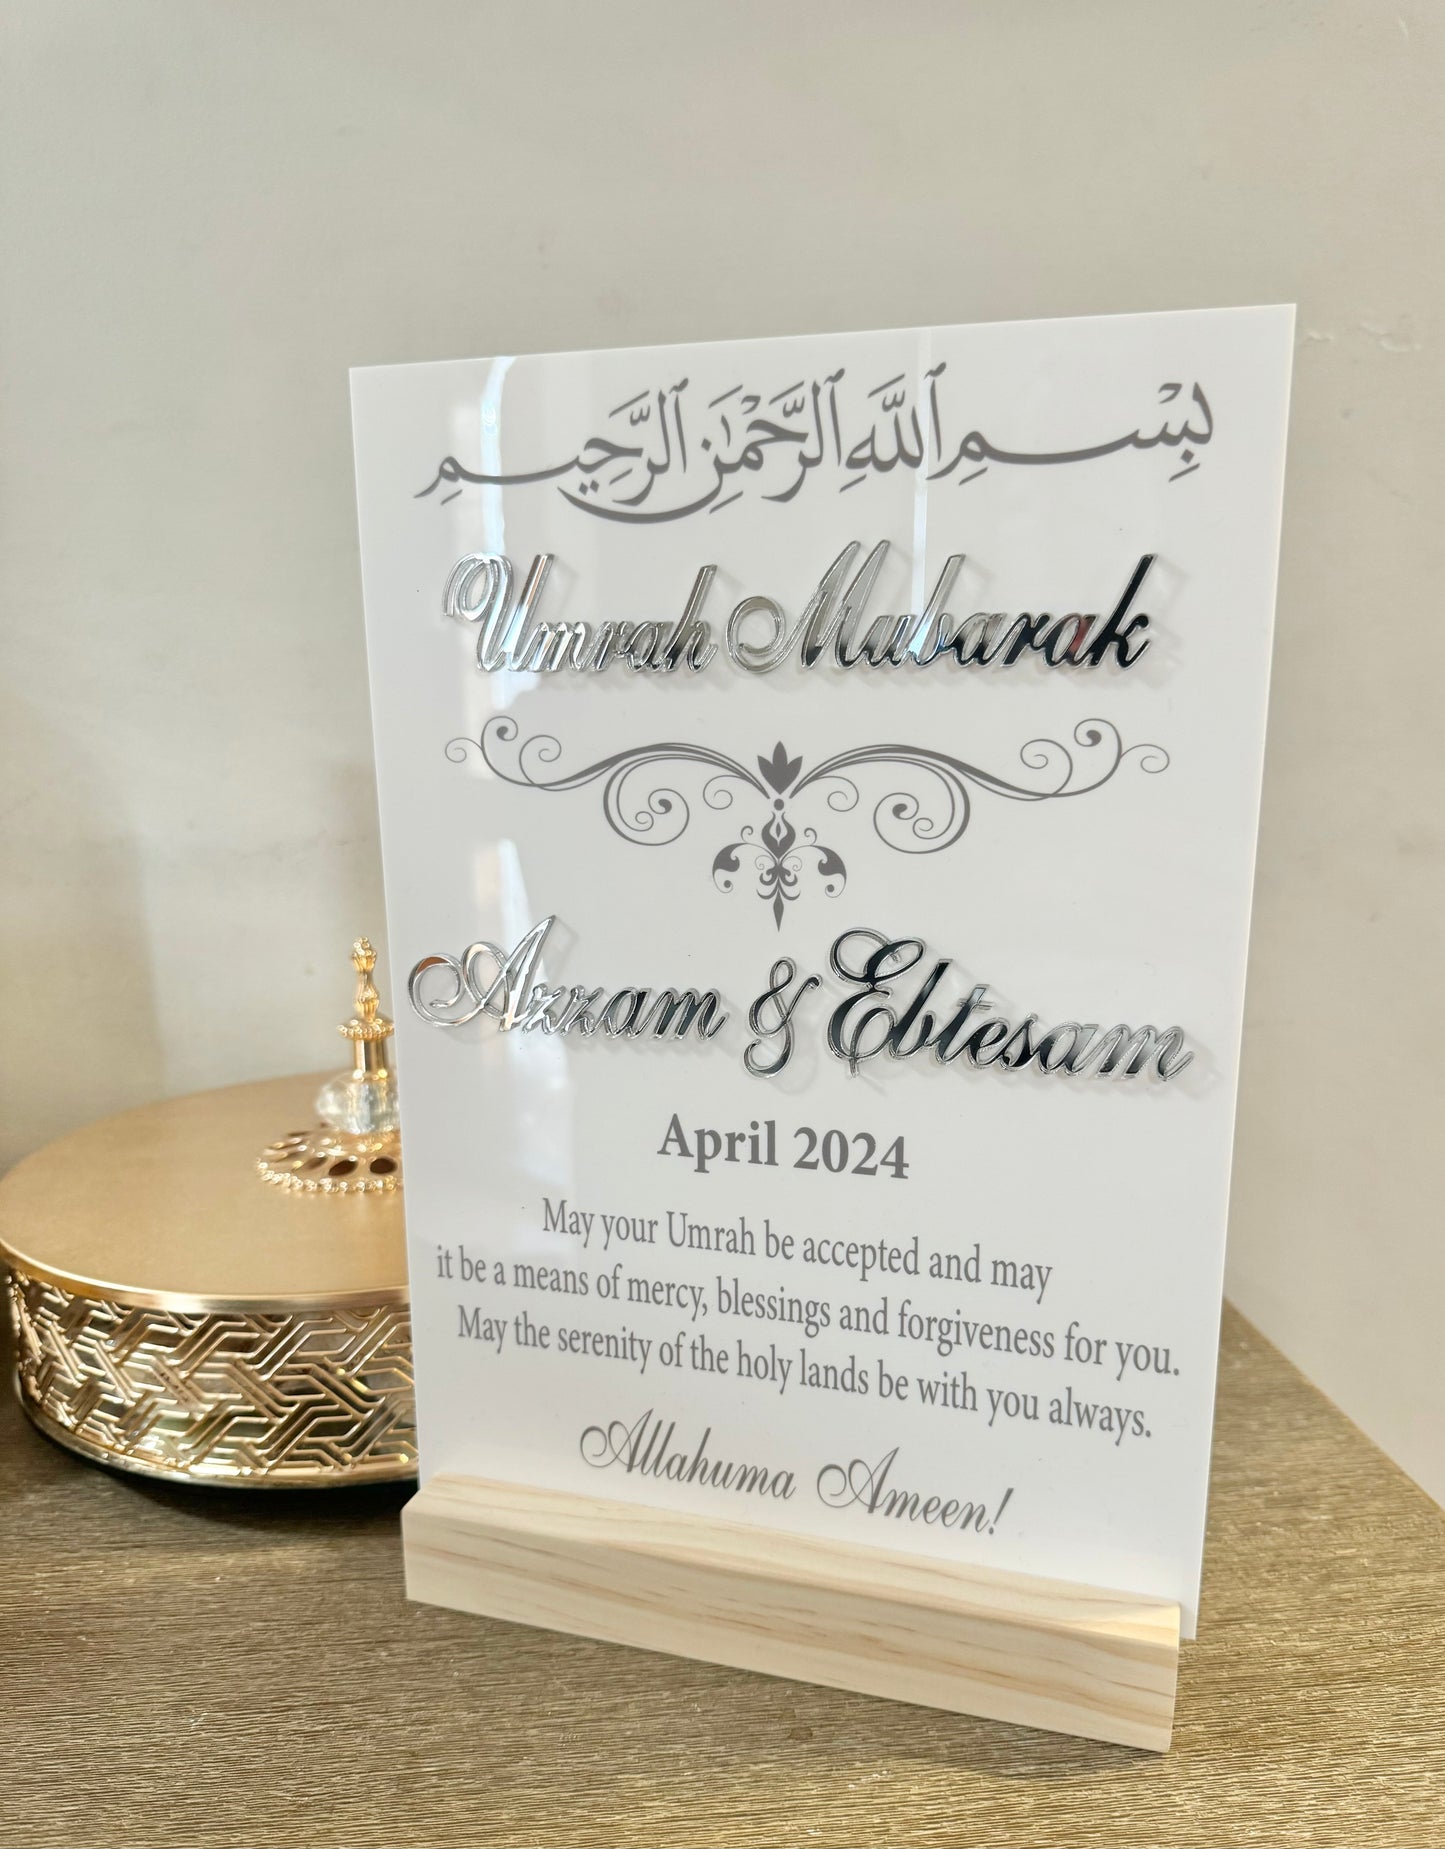 بِسْمِ ٱللَّهِ ٱلرَّحْمَٰنِ ٱلرَّحِيمِ
Umrah Mubarak
Azzam & Ebtesam
April 2024
May your Umrah be accepted and may
it be a means of mercy, blessings and forgiveness for you.
May the serenity of the holy lands be with you always.
Allahuma Ameen!